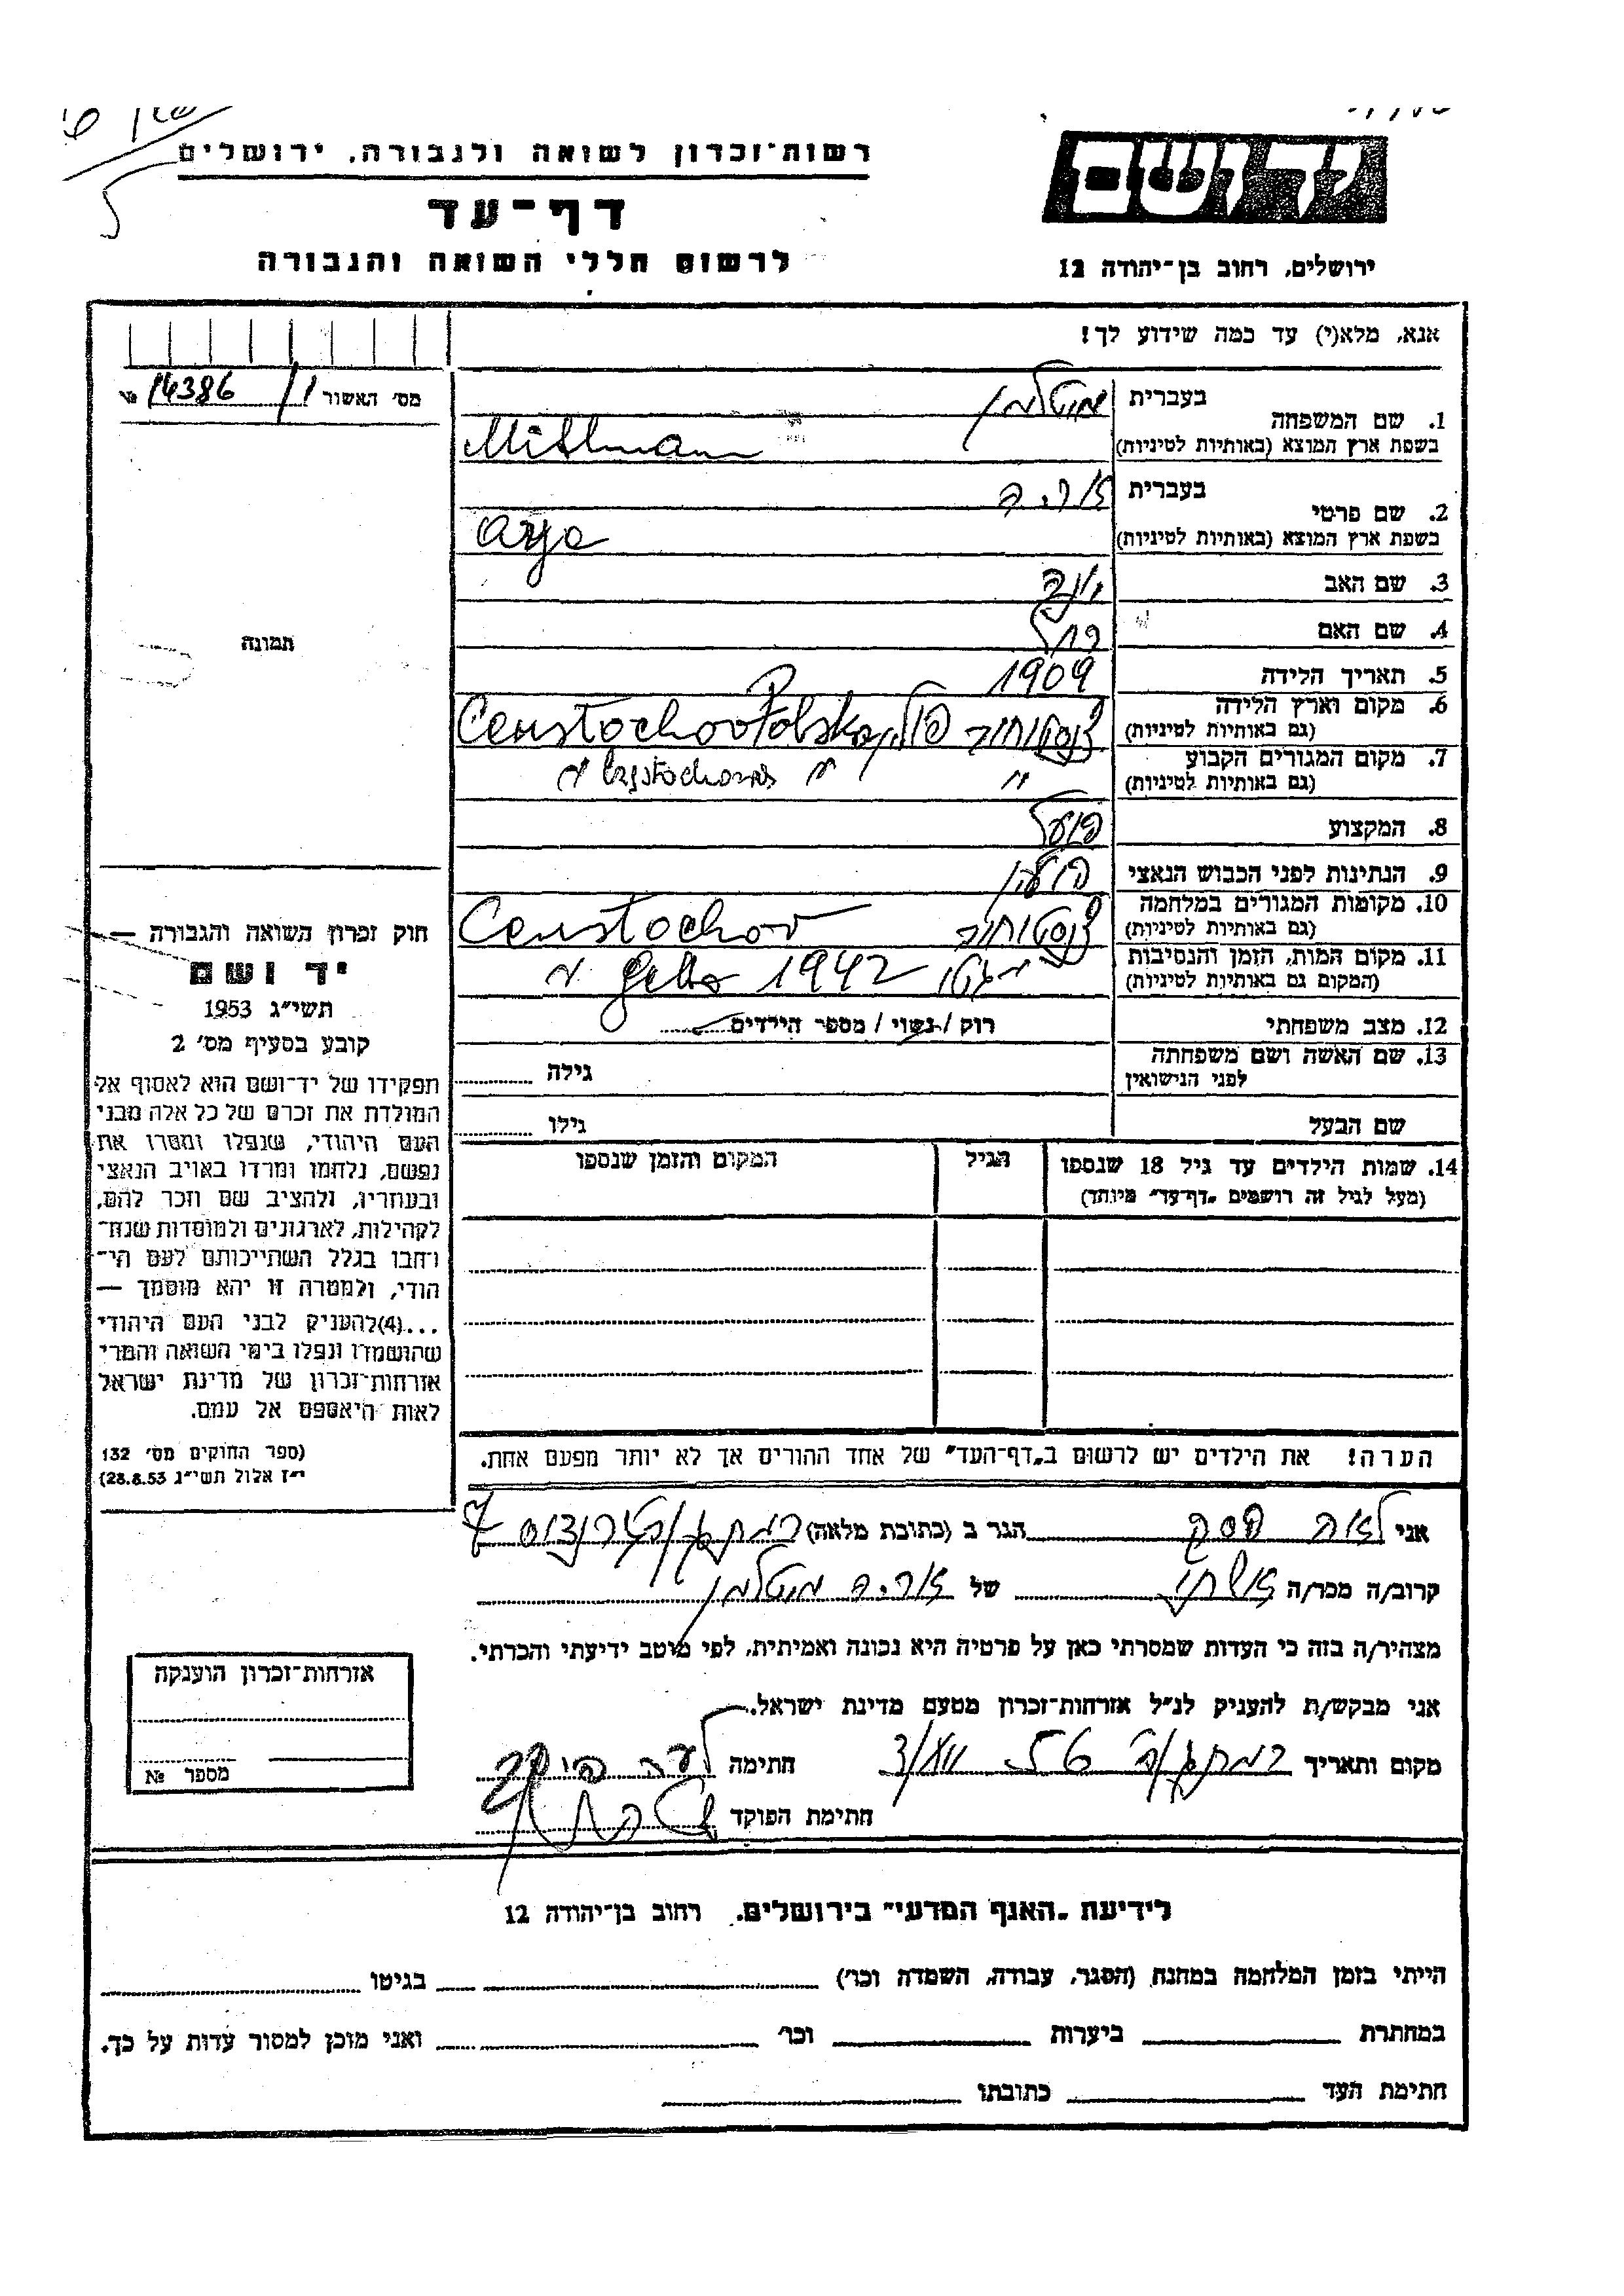 רשות־זכרון לשואה ולגבורה, ירושלים
יד ושם
דף־עד
לרשום חללי השואה והגבורה
ירושלים, רחוב בן־יהודה 12
אנא, מלא(י) עד כמה שידוע לך!
מס' האשור 1/ 14386 №
1. שם המשפחה
בעברית מיטלמן
בשפת ארץ המוצא (באותיות לטיניות) Mitlmann
2. שם פרטי
בעברית אריה
בשפת ארץ המוצא (באותיות לטיניות) Arje
3. שם האב
4. שם האם רחל
5. תאריך הלידה 1909
6. מקום וארץ הלידה
(גם באותיות לטיניות) צנסטוחוב פולין Censtochov Polska
7. מקום המגורים הקבוע
(גם באותיות לטיניות) " " Czestochowa "
8. המקצוע פועל
9. הנתינות לפני הכבוש הנאצי פולין
10. מקומות המגורים במלחמה
(גם באותיות לטיניות) צנסטוחוב Censtochov
11. מקום המות, הזמן והנסיבות
(המקום גם באותיות לטיניות) גטו 1942 Getto "
12. מצב משפחתי רוק / נשוי / מספר הילדים
13. שם האשה ושם משפחתה
לפני הנישואין
גילה
שם הבעל גילו
14. שמות הילדים עד גיל 18 שנספו
(מעל לגיל זה רושמים „דף־עד" מיוחד)
הגיל
המקום והזמן שנספו
הערה! את הילדים יש לרשום ב„דף־העד" של אחד ההורים אך לא יותר מפעם אחת.
תמונה
חוק זכרון השואה והגבורה —
יד ושם
תשי"ג 1953
קובע בסעיף מס' 2
תפקידו של יד־ושם הוא לאסוף אל
המולדת את זכרם של כל אלה מבני
העם היהודי, שנפלו ומסרו את
נפשם, נלחמו ומרדו באויב הנאצי
ובעוזריו, ולהציב שם וזכר להם,
לקהילות, לארגונים ולמוסדות שנח־
רחבו בגלל השתייכותם לעם הי־
הודי, ולמטרה זו יהא מוסמך —
...(4)להעניק לבני העם היהודי
שהושמדו ונפלו בימי השואה והמרי
אזרחות־זכרון של מדינת ישראל
לאות היאספם אל עמם.
(ספר החוקים מס' 132
י"ז אלול תשי"ג 28.8.53)
אני לאה הגר ב (כתובת מלאה) רמת גן 7
קרוב/ה מכר/ה של אריה מיטלמן
מצהיר/ה בזה כי העדות שמסרתי כאן על פרטיה היא נכונה ואמיתית, לפי מיטב ידיעתי והכרתי.
אני מבקש/ת להעניק לנ"ל אזרחות־זכרון מטעם מדינת ישראל.
מקום ותאריך רמת גן חתימה
חתימת הפוקד
אזרחות־זכרון הוענקה
מספר №
לידיעת „האגף המדעי" בירושלים, רחוב בן־יהודה 12
הייתי בזמן המלחמה במחנה (הסגר, עבודה, השמדה וכו') בגיטו
במחתרת ביערות וכו' ואני מוכן למסור עדות על כך.
חתימת העד כתובתו